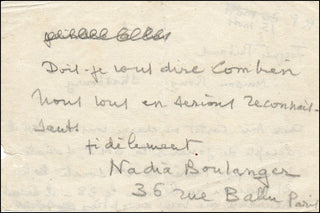 Dois-je vous dire combien
nous vous en serions reconnais-
sants
fidèlement.
Nadia Boulanger
36 rue Ballu Paris